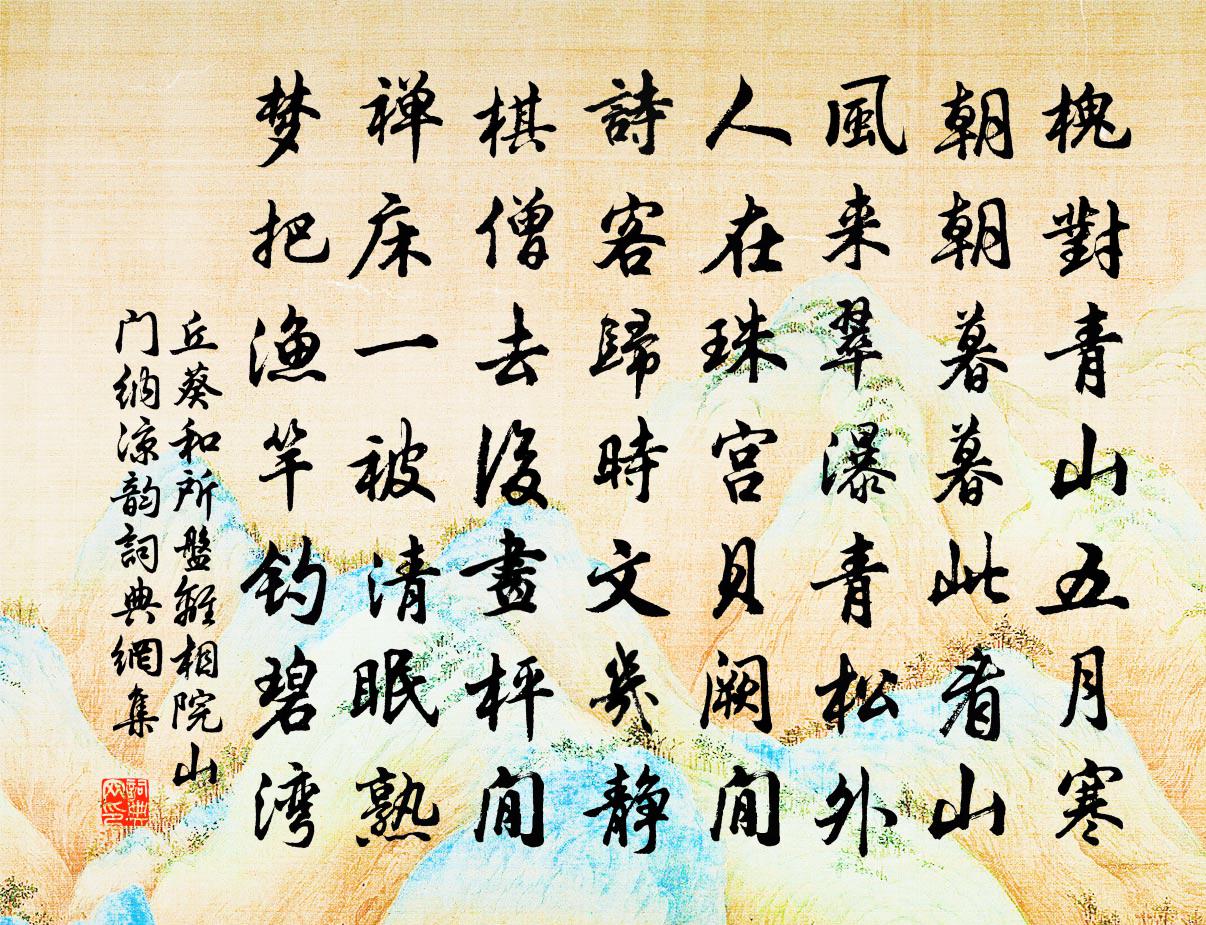 槐對青山五月寒
朝朝暮暮此看山
風来翠瀑青松外
人在珠宫貝闕閒
詩客歸時文幾静
棋僧去後畫枰閒
禅床一被清眠熟
梦把渔竿钓碧湾
丘葵和所盤難相院山
门纳凉韵詞典網集
詞典
网印